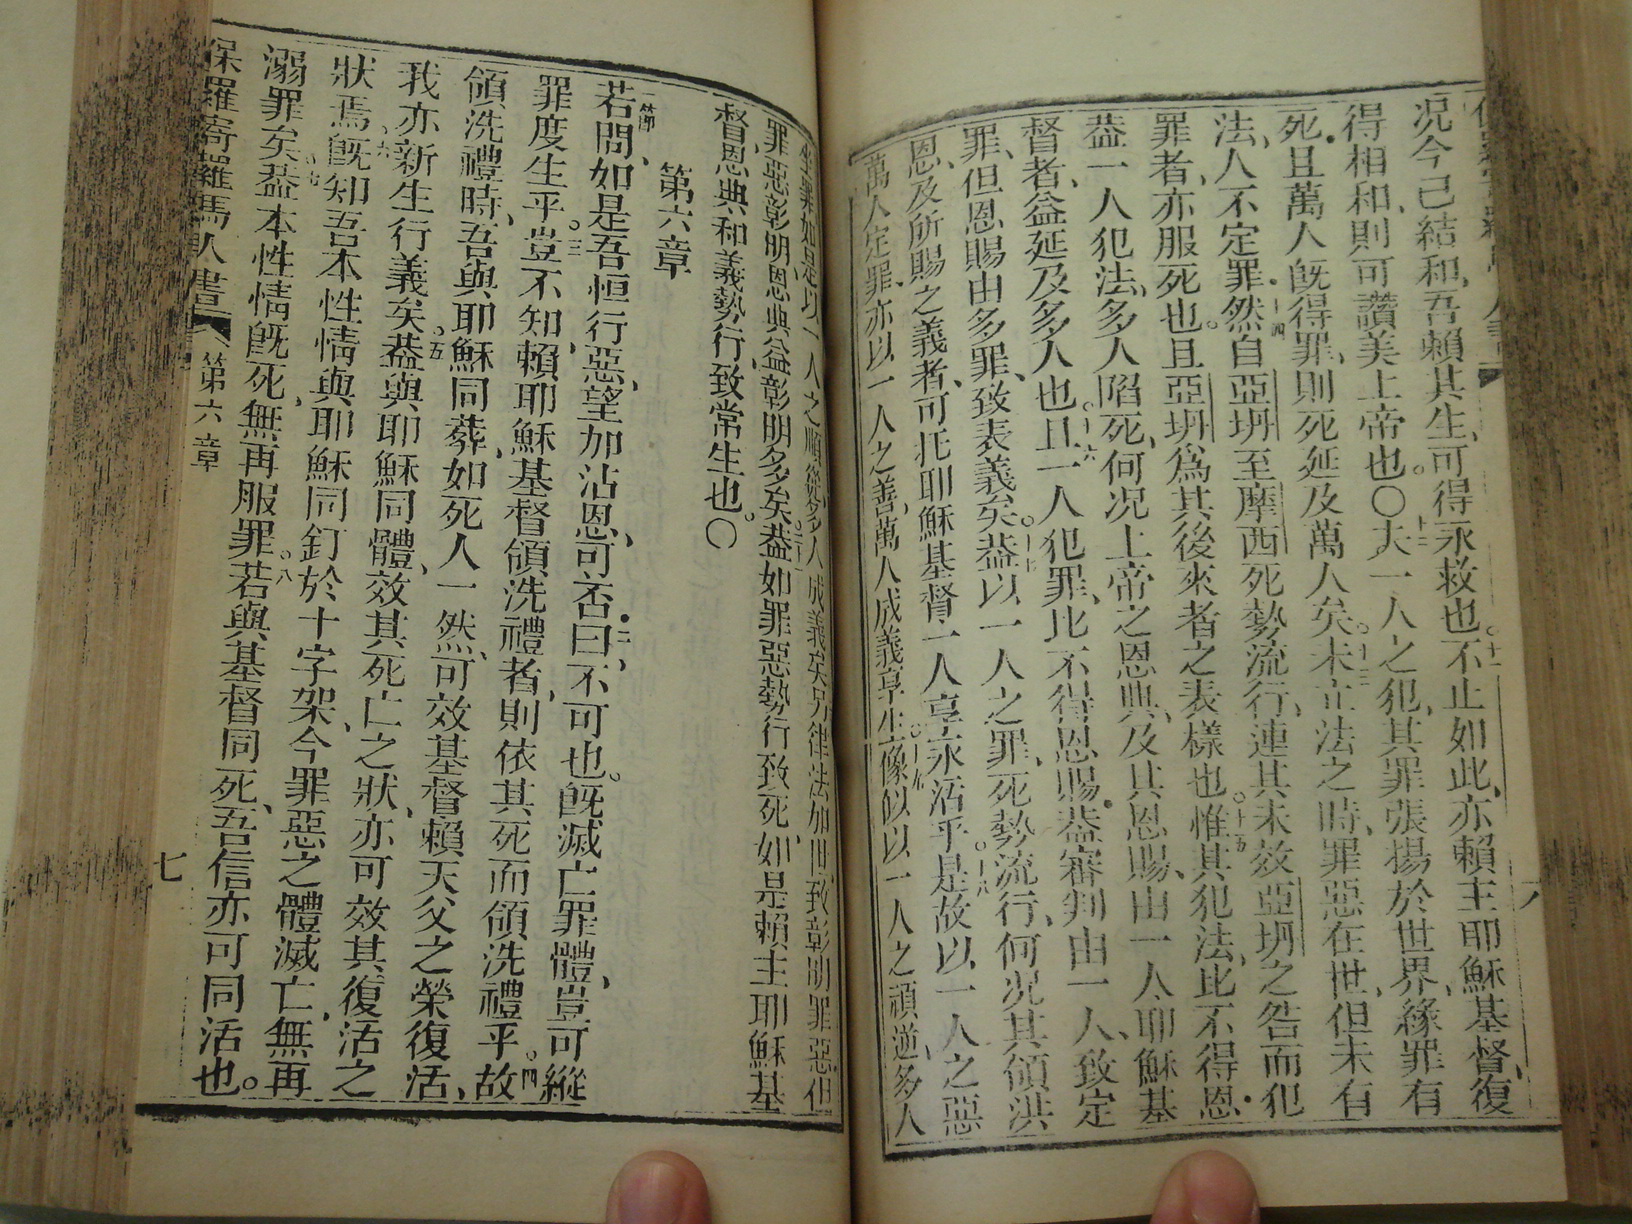 况今己結和、吾賴其生、可得永救也。十一不止如此、亦賴主耶穌基督、復
得相和、則可讚美上帝也。〇十二夫一人之犯、其罪張揚於世界、緣罪有
死。且萬人旣得罪、則死延及萬人矣。十三未立法之時、罪惡在世、但未有
法、人不定罪。十四然自亞坍至摩西死勢流行、連其未效亞坍之咎而犯
罪者、亦服死也。且亞坍爲其後來者之表樣也。十五惟其犯法、比不得恩。
葢一人犯法、多人陷死、何況上帝之恩典、及其恩賜、由一人耶穌基
督者、益延及多人也。十六且一人犯罪、比不得恩賜。葢審判由一人、致定
罪、但恩賜由多罪、致表義矣。十七葢以一人之罪、死勢流行、何況其領洪
恩、及所賜之義者、可托耶穌基督一人、享永活乎。十八是故以一人之惡
萬人定罪、亦以一人之善、萬人成義享生。十九像似以一人之頑逆、多人
坐罪、如是以一人之順從、多人成義矣。另律法加世、致彰明罪惡、但
罪惡彰明、恩典益彰明多矣。二十一葢如罪惡勢行致死、如是賴主耶穌基
督、恩典和義勢行、致常生也。〇
第六章
一節若問、如是吾恒行惡、望加沾恩、可否。二曰、不可也。旣滅亡罪體、豈可縱
罪度生乎。三豈不知、賴耶穌基督領洗禮者、則依其死而領洗禮乎。四故
領洗禮時、吾與耶穌同葬、如死人一然、可效基督賴天父之榮復活、
我亦新生行義矣。五葢與耶穌同體、效其死亡之狀、亦可效其復活之
狀焉。六旣知吾本性情與耶穌同釘於十字架、今罪惡之體滅亡、無再
溺罪矣。七葢本性情旣死、無再服罪。八若與基督同死、吾信亦可同活也。
保羅寄羅馬人書 第六章 七